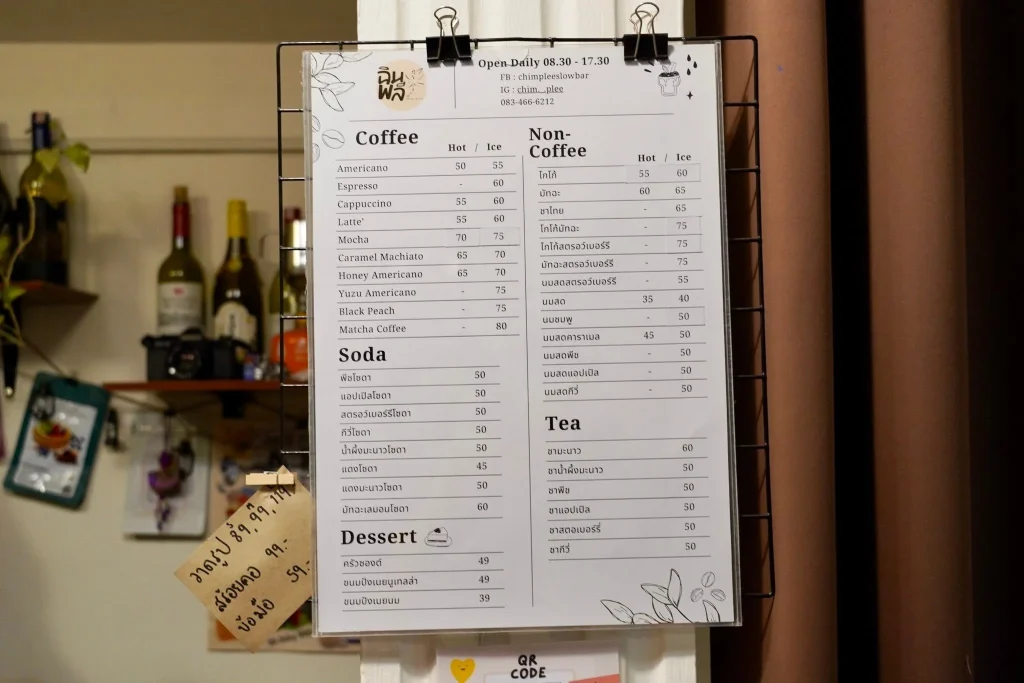 ฉิน
พลี
Open Daily 08.30 - 17.30
FB : chimpleeslowbar
IG : chim__plee
083-466-6212
Coffee
Hot / Ice
Americano 50 55
Espresso - 60
Cappuccino 55 60
Latte' 55 60
Mocha 70 75
Caramel Machiato 65 70
Honey Americano 65 70
Yuzu Americano - 75
Black Peach - 75
Matcha Coffee - 80
Soda
พีชโซดา 50
แอปเปิลโซดา 50
สตรอว์เบอร์รีโซดา 50
กีวี่โซดา 50
น้ำผึ้งมะนาวโซดา 50
แดงโซดา 45
แดงมะนาวโซดา 50
มัทฉะเลมอนโซดา 60
Dessert
ครัวซองต์ 49
ขนมปังเนยนูเทลล่า 49
ขนมปังเนยนม 39
Non-
Coffee
Hot / Ice
โกโก้ 55 60
มัทฉะ 60 65
ชาไทย - 65
โกโก้มัทฉะ - 75
โกโก้สตรอว์เบอร์รี - 75
มัทฉะสตรอว์เบอร์รี - 75
นมสดสตรอว์เบอร์รี - 55
นมสด 35 40
นมชมพู - 50
นมสดคาราเมล 45 50
นมสดพีช - 50
นมสดแอปเปิล - 50
นมสดกีวี่ - 50
Tea
ชามะนาว 60
ชาน้ำผึ้งมะนาว 50
ชาพีช 50
ชาแอปเปิล 50
ชาสตอเบอร์รี่ 50
ชากีวี่ 50
วาดรูป 89,99,119
สร้อยคอ 99.-
ข้อมือ 59.-
QR
CODE